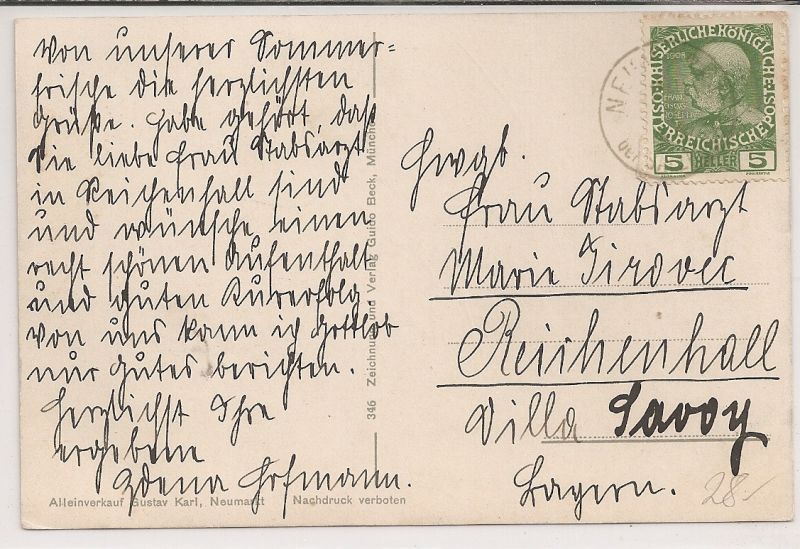 Von unserer Sommer=
frische die herzlichsten
Grüße. Habe gehört, daß
Sie liebe Frau Stabsarzt
in Reichenhall sind
und wünsche einen
recht schönen Aufenthalt
und guten Kurerfolg
Von uns kann ich Gottlob
nur gutes berichten.
Herzlichst Ihre
ergebene
Zdena Hofmann.
Alleinverkauf Gustav Karl, Neumarkt Nachdruck verboten
346 Zeichnung und Verlag Guido Beck, München
NEU
KAISERLICHE KÖNIGLICHE
ÖSTERREICHISCHE POST
1908
5 HELLER 5
Hwgb.
Frau Stabsarzt
Marie Tirovec
Reichenhall
Villa Savoy
Bayern.
28.-